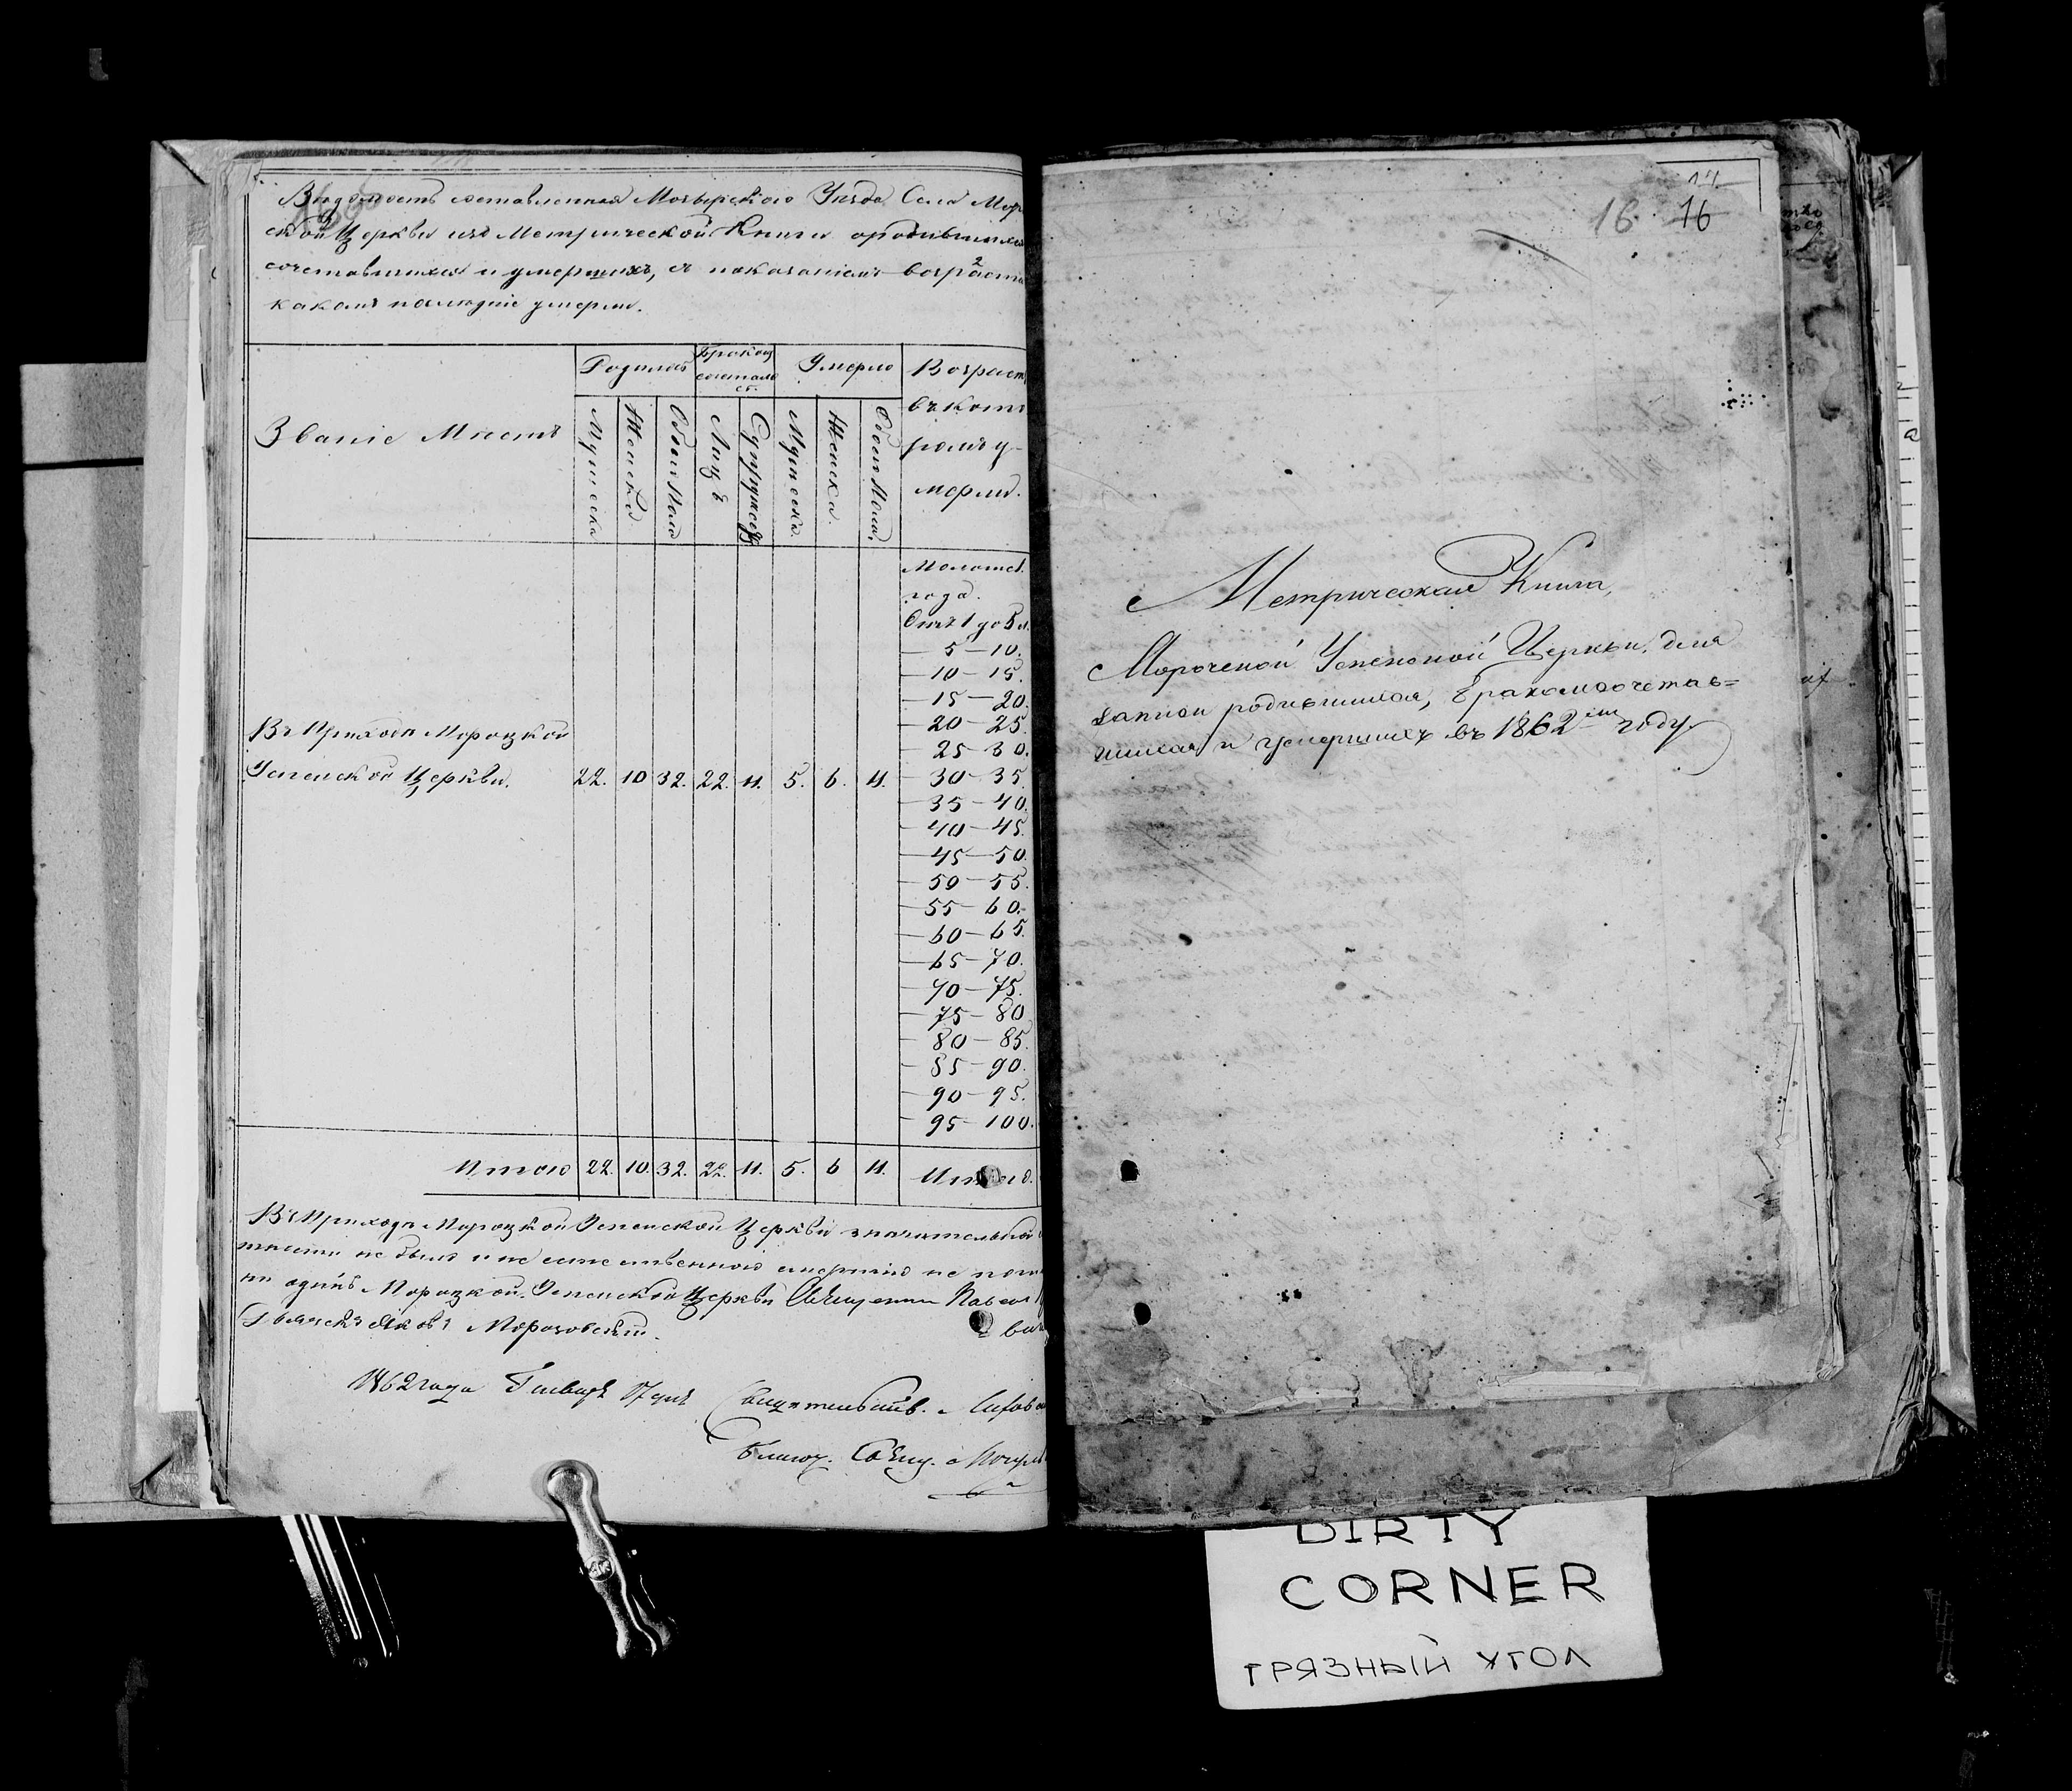 Ведомость составленная Мозырскаго Уезда Села Мор
ской Церкви изъ Метрической Книги о родившихся
сочетавшихся и умершихъ, съ показаніемъ возраста
какомъ последніе умерли.
Званіе Местъ
Родилось
Бракомъ сочеталось
Умерло
Возрастъ
въ кото
ромъ у-
мерли.
Мужеска
Женска
Обоего пола
Лицъ
Супружествъ
Мужеска
Женска.
Обоего пола.
года.
Отъ 1 до 5 л.
5-10.
10-15.
15-20.
20-25.
25-30.
30-35
35-40.
40-45.
45-50.
50-55.
55-60.
60-65.
65-70.
70-75.
75-80
80-85.
85-90.
90-95.
95-100.
Въ Приходе Мороцкой
Успенской Церкви. 22. 10 32. 22. 11. 5. 6. 11.
Итого 22. 10. 32. 22. 11. 5. 6 11. Итого.
Въ Приходе Мороцкой Успенской Церкви значительной
не было и не естественною смертію не
ни одинъ Мороцкой Успенской Церкви Священник Павел
Яковъ Морозовскій.
1862 года Генваря 17 дня
Благоч. Свящ.
17
16. 16
Метрическая Книга,
Мороческой Успенской Церкви, для
записи родившихся, бракомъ сочетав=
шихся и умершихъ въ 1862-мъ году.
DIRTY
CORNER
ГРЯЗНЫЙ УГОЛ